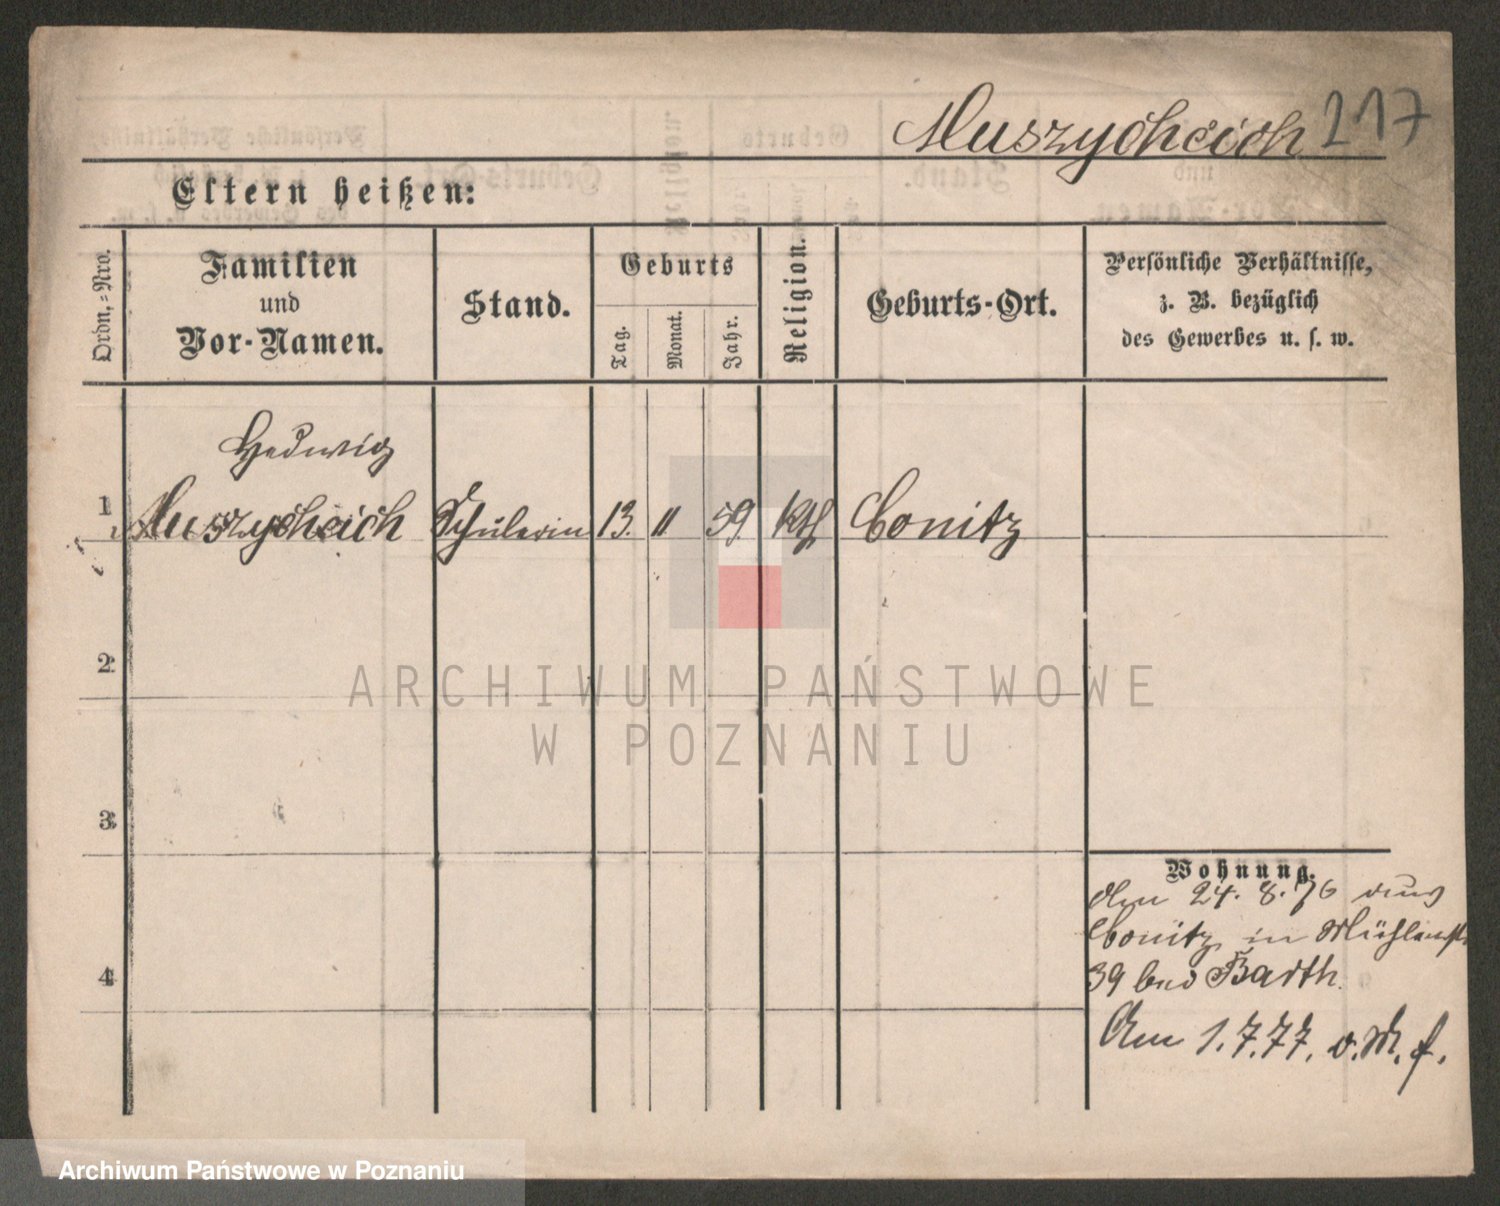 Muszycheich 217
Eltern heißen:
Ordn.-Nro.
Familien
und
Vor-Namen.
Stand.
Geburts
Tag.
Monat.
Jahr.
Religion.
Geburts-Ort.
Persönliche Verhältnisse,
z. B. bezüglich
des Gewerbes u. s. w.
Hedwig
1
Muszycheich Schülerin 13. 11 59. kth Conitz
2
3
4
Wohnung.
den 24. 8. 76 aus
Conitz in Mühlenstr.
39 bei Barth.
Am 1.7.77. v. M. f.
ARCHIWUM PAŃSTWOWE
W POZNANIU
Archiwum Państwowe w Poznaniu